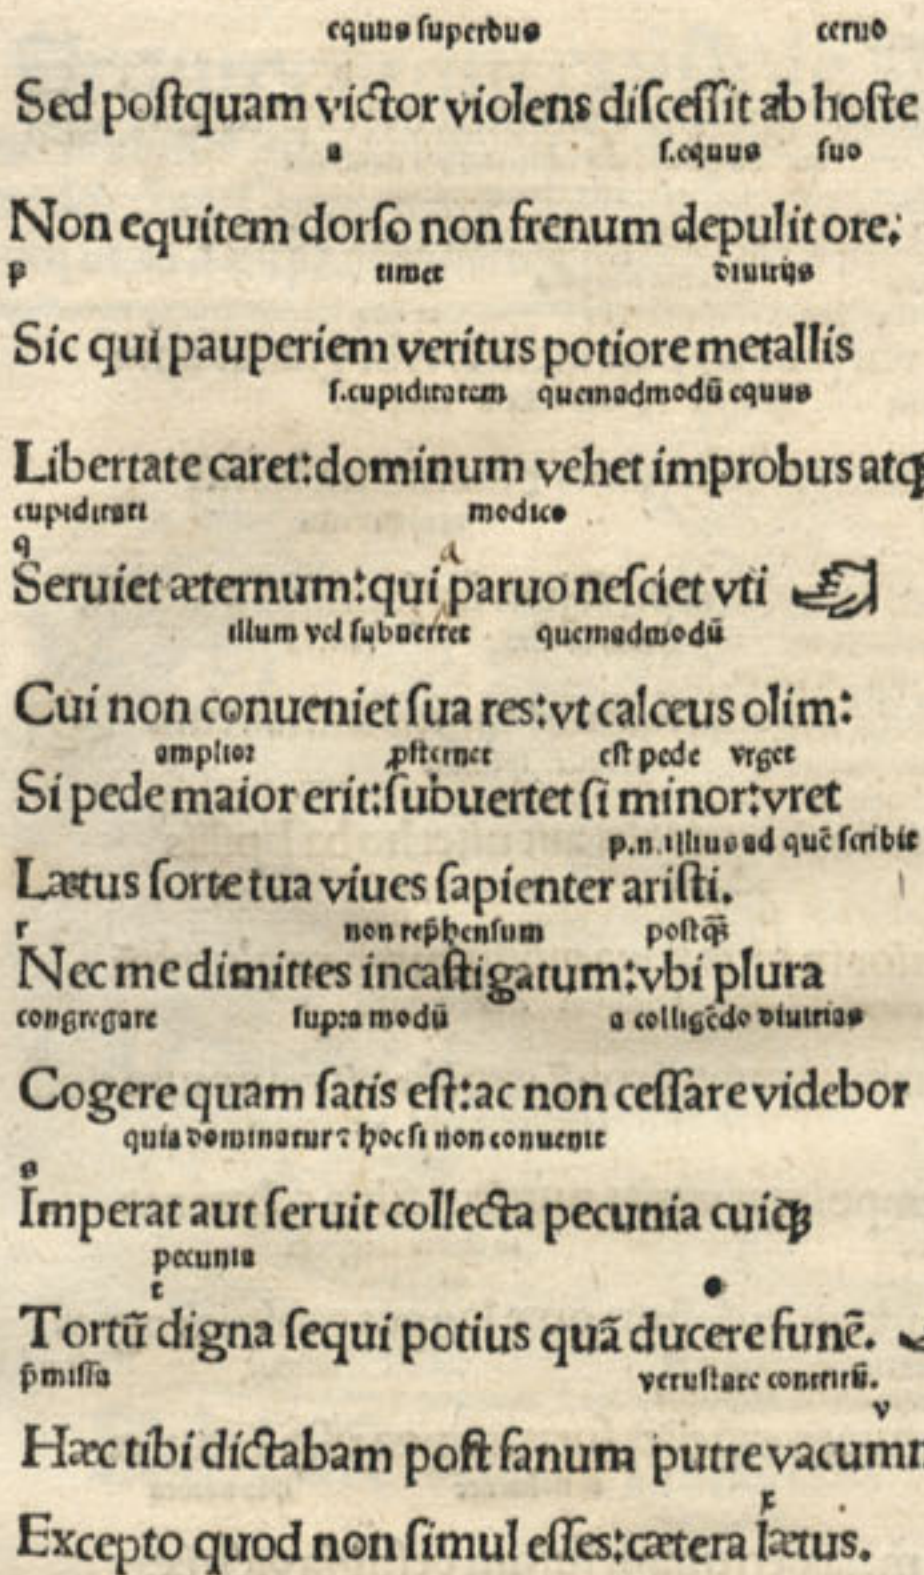 equus superbus ceruo
Sed poſtquam victor violens diſceſſit ab hoſte
a ſ.equus ſuo
Non equitem dorſo non frenum depulit ore;
p timet diuitijs
Sic qui pauperiem veritus potiore metallis
ſ.cupiditatem quemadmodū equus
Libertate caret:dominum vehet improbus atqꝫ
cupiditati modico
q a
Seruiet æternum:qui paruo neſciet vti
illum vel ſubuerret quemadmodū
Cui non conueniet ſua res:vt calceus olim:
amplior ꝓſternet eſt pede vrget
Si pede maior erit:ſubuertet ſi minor:vret
p.n.illius ad quē ſcribit
Lætus ſorte tua viues ſapienter ariſti.
r non rep̄henſum poſtq̄ꝫ
Nec me dimittes incaſtigatum:vbi plura
congregare ſupra modū a colligēdo diuitias
Cogere quam ſatis eſt:ac non ceſſare videbor
quia dominatur ⁊ hoc ſi non conuenit
s
Imperat aut ſeruit collecta pecunia cuiqꝫ
pecunia
t
Tortū digna ſequi potius quā ducere funē.
p̄miſſa vetuſtate contritū.
v
Hæc tibi dictabam poſt fanum putre vacunę
x
Excepto quod non ſimul eſſes:cætera lætus.